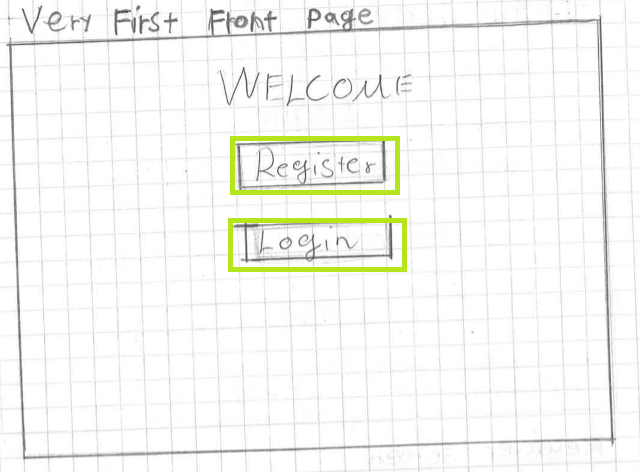 Very First Front Page
WELCOME
Register
Login